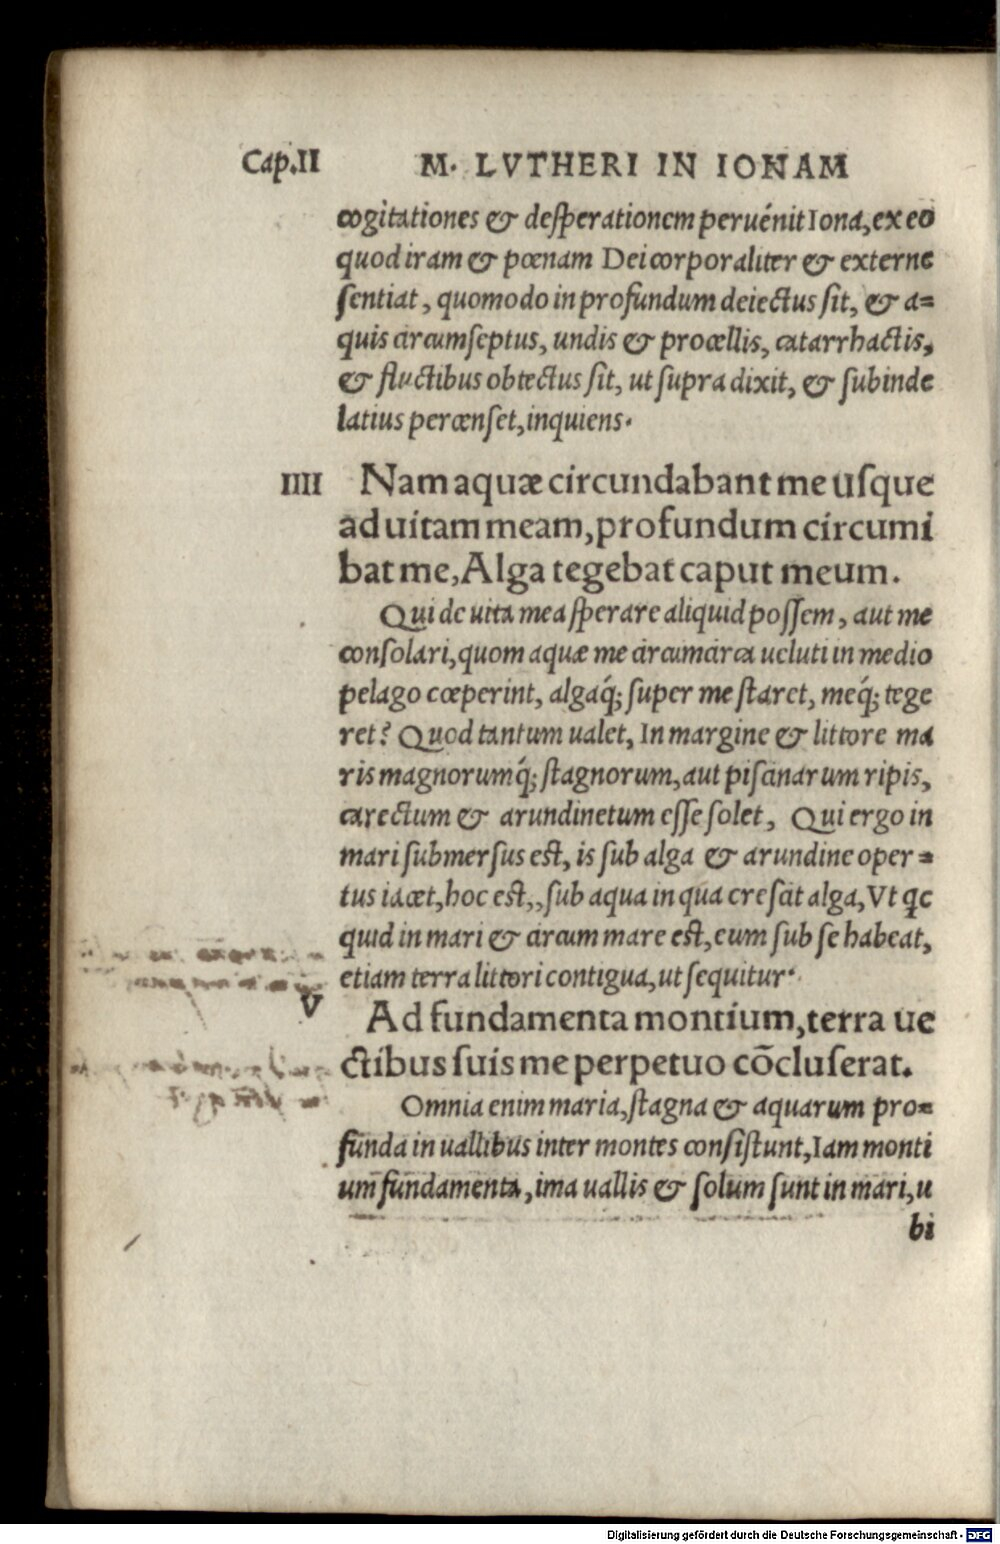 Cap.II M. LVTHERI IN IONAM
cogitationes & desperationem peruénit Iona, ex eo
quod iram & pœnam Dei corporaliter & externe
sentiat, quomodo in profundum deiectus sit, & a=
quis circumseptus, undis & procellis, catarrhactis,
& fluctibus obtectus sit, ut supra dixit, & subinde
latius percenset, inquiens.
IIII Nam aquæ circundabant me usque
ad uitam meam, profundum circumi
bat me, Alga tegebat caput meum.
Qui de uita mea sperare aliquid possem, aut me
consolari, quom aquæ me circumcirca ueluti in medio
pelago cœperint, algaq́; super me staret, meq́; tege
ret? Quod tantum ualet, In margine & littore ma
ris magnorumq́; stagnorum, aut piscinarum ripis,
carectum & arundinetum esse solet, Qui ergo in
mari submersus est, is sub alga & arundine oper=
tus iacet, hoc est,, sub aqua in qua crescit alga, Vt qc
quid in mari & circum mare est, eum sub se habeat,
etiam terra littori contigua, ut sequitur.
V Ad fundamenta montium, terra ue
ctibus suis me perpetuo cōcluserat.
Omnia enim maria, stagna & aquarum pro=
funda in uallibus inter montes consistunt, Iam monti
um fundamenta, ima uallis & solum sunt in mari, u
bi
Digitalisierung gefördert durch die Deutsche Forschungsgemeinschaft - DFG